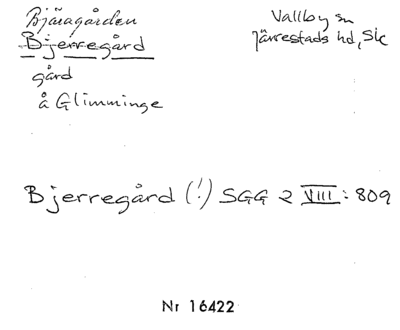 Bjäragården
Bjerregård
gård
å Glimminge
Vallby sn
Järrestads hd, Sk
Bjerregård (!) SGG 2 VIII: 809
Nr 16422